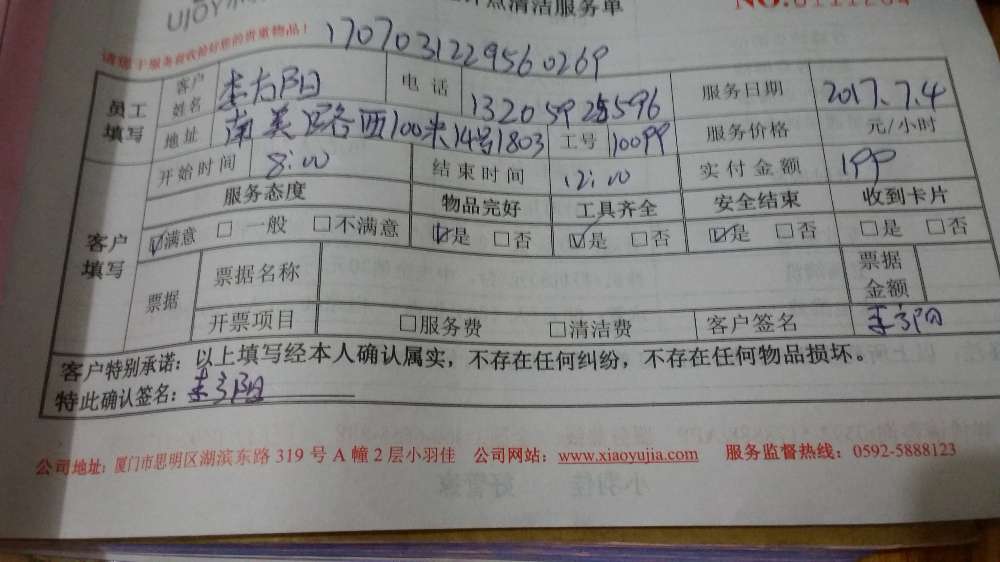 UJOY
点清洁服务单
NO.0111204
请您于服务前收拾好您的贵重物品!
170703122956 0269
员工填写
客户姓名
电话
服务日期 2017.7.4
地址 南美路西100米14号1803 工号 10099 服务价格 元/小时
客户填写
开始时间 8:00 结束时间 12:00 实付金额 199
服务态度 物品完好 工具齐全 安全结束 收到卡片
☑满意 □一般 □不满意 ☑是 □否 ☑是 □否 ☑是 □否 □是 □否
票据 票据名称 票据金额
开票项目 □服务费 □清洁费 客户签名
客户特别承诺：以上填写经本人确认属实，不存在任何纠纷，不存在任何物品损坏。
特此确认签名：
公司地址：厦门市思明区湖滨东路 319 号 A 幢 2 层小羽佳 公司网站：www.xiaoyujia.com 服务监督热线：0592-5888123